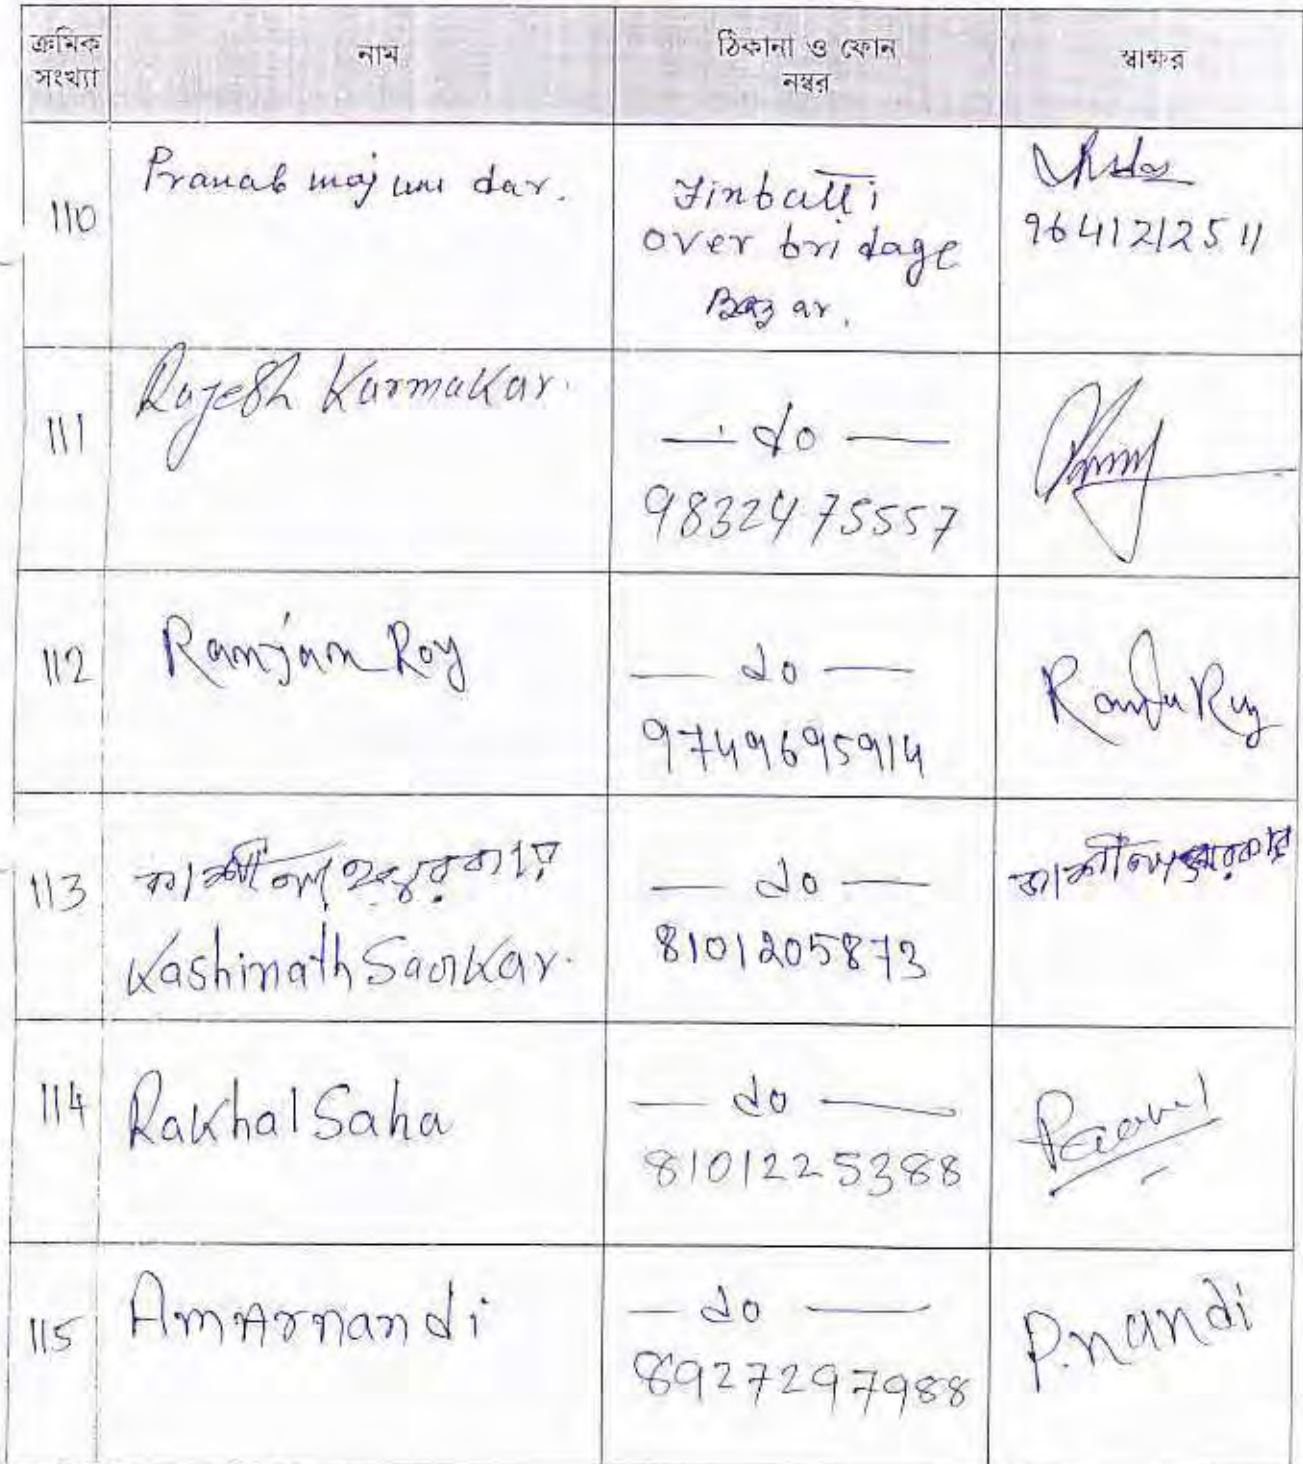 ক্রমিক সংখ্যা নাম ঠিকানা ও ফোন নম্বর স্বাক্ষর
110 Pranab majumdar. Tinbatti
over bridage
Bazar.
9641212511
111 Rajesh Karmakar. — do —
9832475557
112 Ranjan Roy — do —
9749695914
113 কাশীনাথ সরকার — do — কাশীনাথ সরকার
Kashinath Sarkar. 8101205873
114 Rakhal Saha — do —
8101225388
115 Amarnandi — do — P.nandi
8927297988